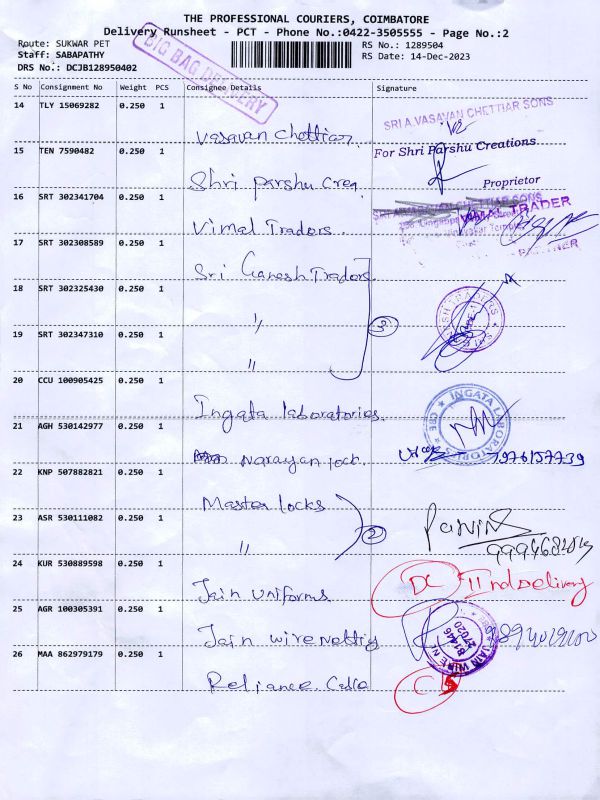 THE PROFESSIONAL COURIERS, COIMBATORE
Delivery Runsheet - PCT - Phone No.:0422-3505555 - Page No.:2
Route: SUKWAR PET
RS No.: 1289504
Staff: SABAPATHY
RS Date: 14-Dec-2023
DRS No.: DCJB128950402
BIG BAG DELIVERY
S No Consignment No Weight PCS Consignee Details Signature
14 TLY 15069282 0.250 1
SRI A. VASAVAN CHETTIAR SONS
Vasavan Chettiar
15 TEN 7590482 0.250 1
For Shri Parshu Creations
Shri Parshu Crea
Proprietor
16 SRT 302341704 0.250 1
VIMAL TRADER
Vimal Traders
PARTNER
17 SRT 302308589 0.250 1
Sri Ganesh Traders
18 SRT 302325430 0.250 1
"
3
19 SRT 302347310 0.250 1
"
20 CCU 100905425 0.250 1
INGATA LABORATORIES
CBE
Ingata laboratories
21 AGH 530142977 0.250 1
Narayan lock.
7976157739
22 KNP 507882821 0.250 1
Master locks
23 ASR 530111082 0.250 1
"
2
24 KUR 530889598 0.250 1
DC II nd Delivery
Jain Uniforms
25 AGR 100305391 0.250 1
JAIN WIRE N
Jain wire netting
26 MAA 862979179 0.250 1
Reliance